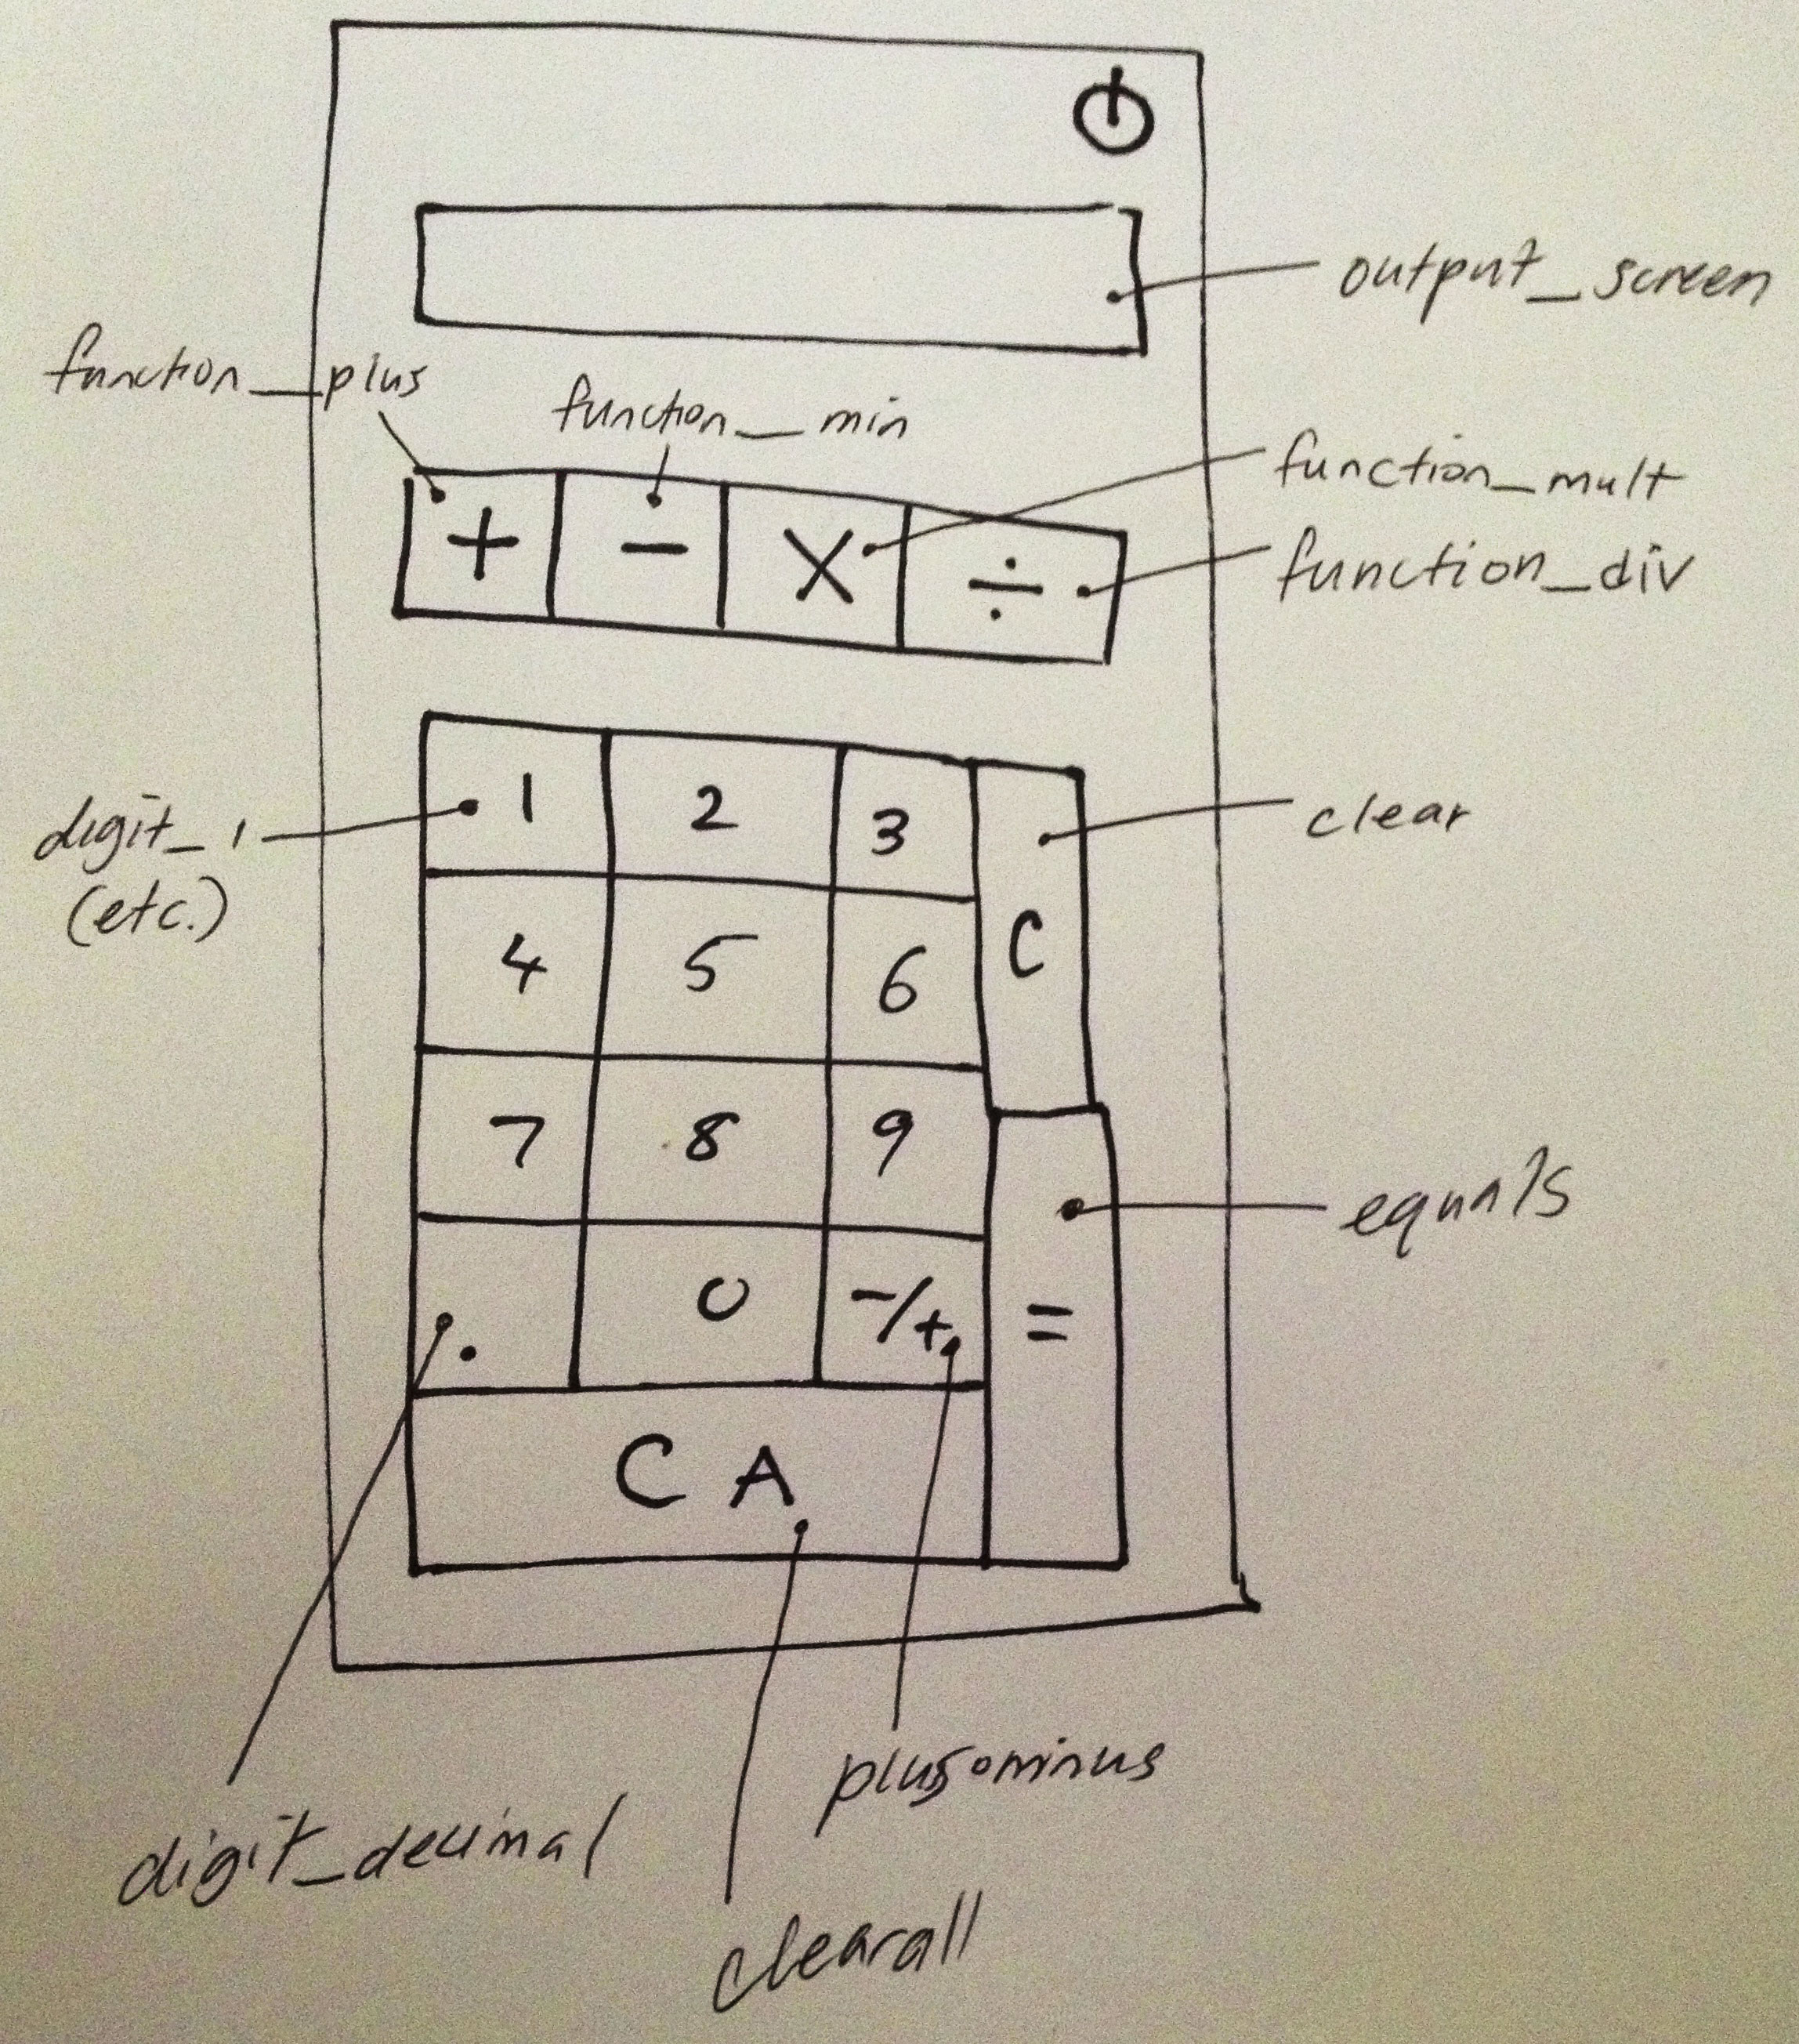 output_screen
function_plus
function_min
function_mult
function_div
+ - X ÷
1 2 3
digit_1
(etc.)
clear
C
4 5 6
7 8 9
equals
. 0 -/+
=
CA
plusominus
digit_decimal
clearall